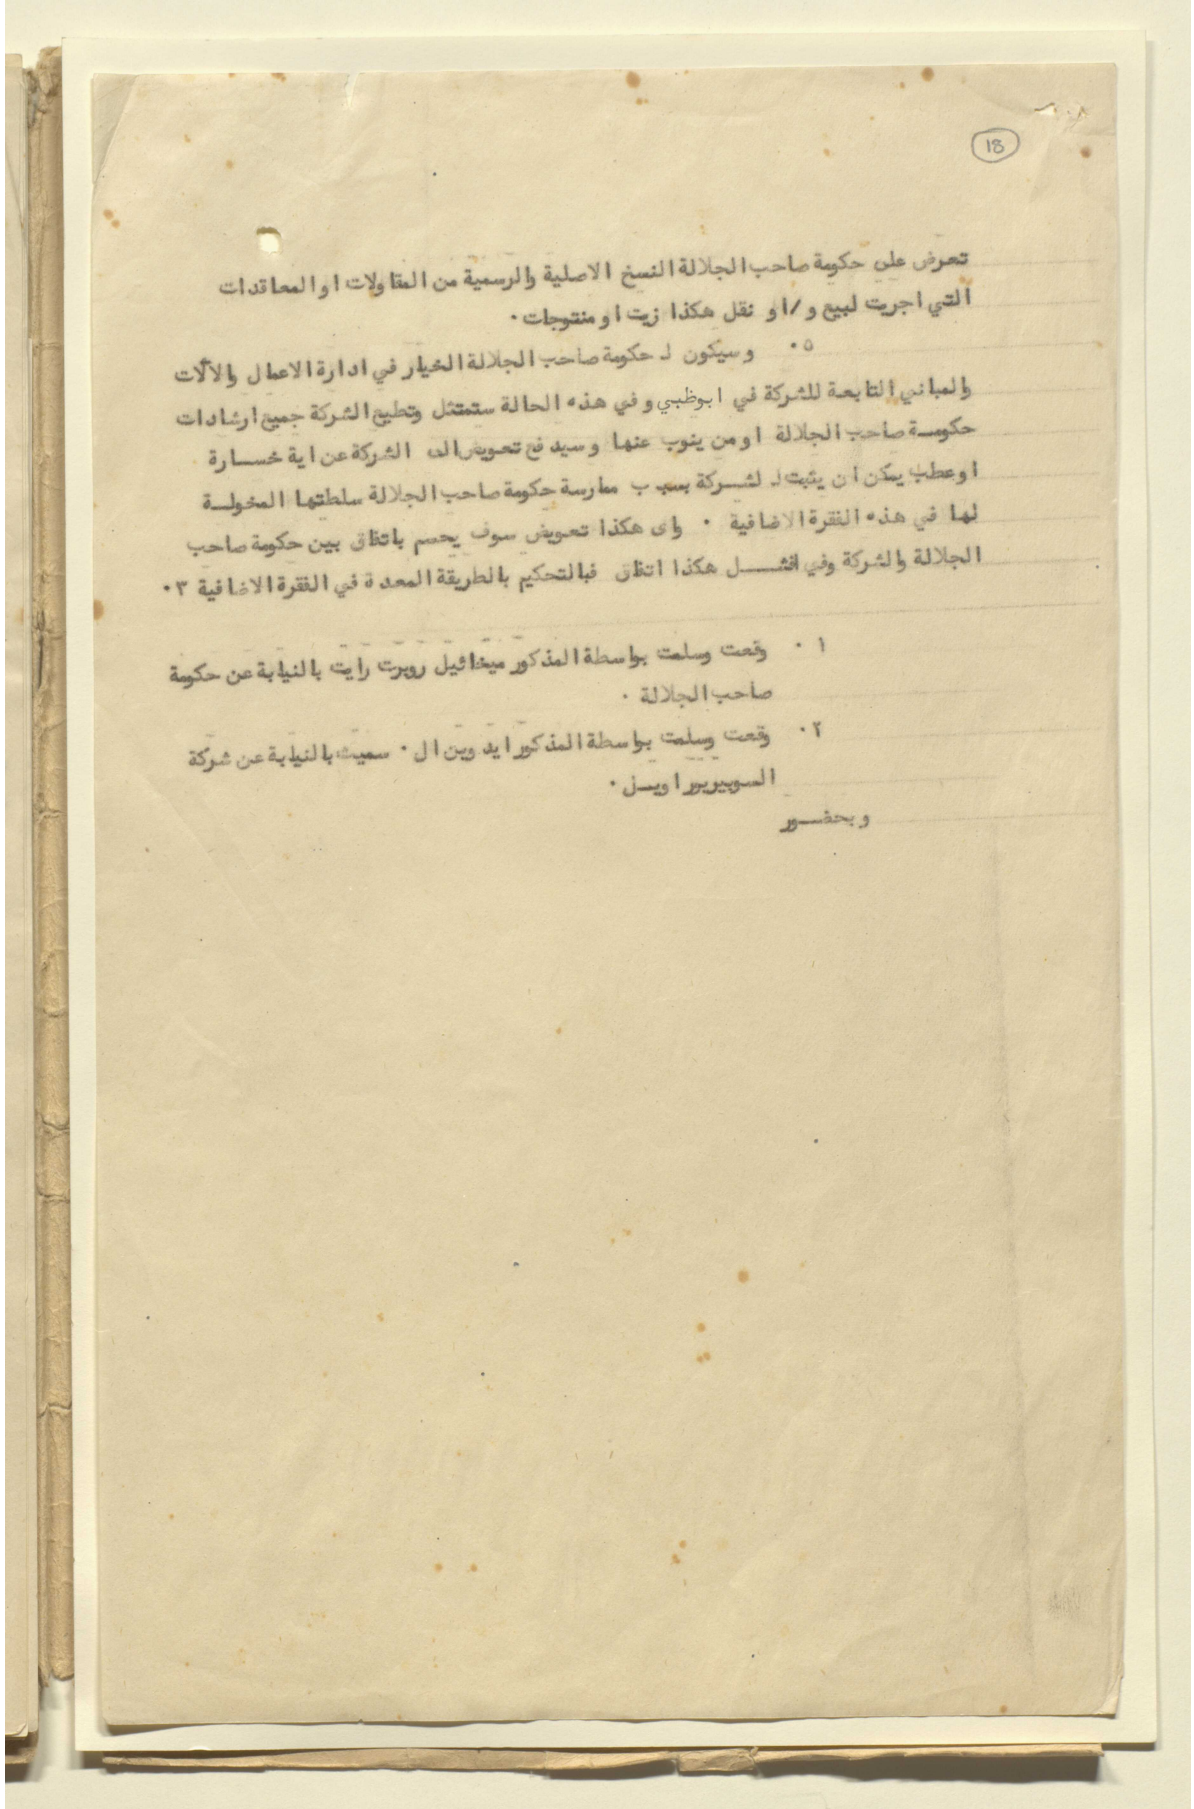 18
تعرض على حكومة صاحب الجلالة النسخ الاصلية والرسمية من المقاولات او المعاقدات
التي اجريت لبيع و/او نقل هكذا زيت او منتوجات ٠
٥ ٠ وسيكون لـ حكومة صاحب الجلالة الخيار في ادارة الاعمال والآلات
والمباني التابعة للشركة في ابوظبي وفي هذه الحالة ستمتثل وتطيع الشركة جميع ارشادات
حكومـة صاحب الجلالة او من ينوب عنها وسيدفع تعويض الى الشركة عن اية خســارة
او عطب يمكن ان يثبت لـ لشــركة بسبب ممارسة حكومة صاحب الجلالة سلطتها المخولــة
لها في هذه الفقرة الاضافية ٠ واى هكذا تعويض سوف يحسم باتفاق بين حكومة صاحب
الجلالة والشركة وفي افشــل هكذا اتفاق فبالتحكيم بالطريقة المعدة في الفقرة الاضافية ٣ ٠
١ ٠ وقعت وسلمت بواسطة المذكور ميخائيل روبرت رايت بالنيابة عن حكومة
صاحب الجلالة ٠
٢ ٠ وقعت وسلمت بواسطة المذكور ايدوين ال ٠ سميث بالنيابة عن شركة
السوبيريور اويـل ٠
وبحضــور